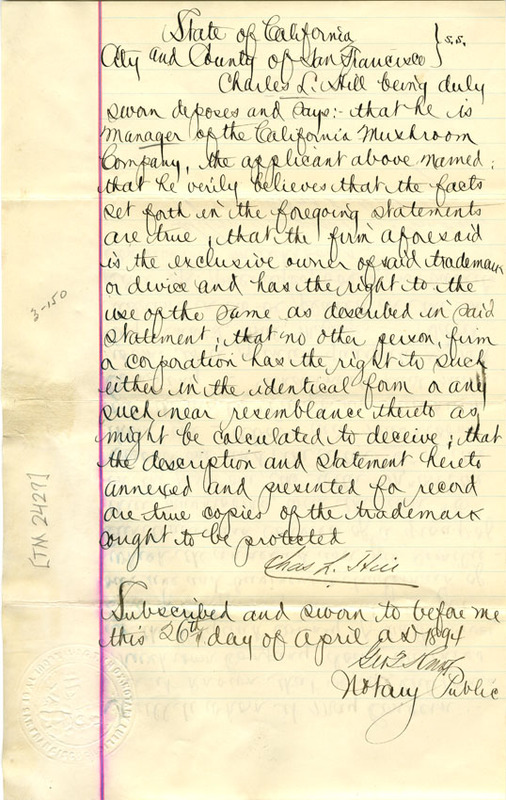 State of California
City and County of San Francisco } s.s.
Charles L. Hill being duly
sworn deposes and says:- that he is
manager of the California Mushroom
Company, the applicant above named;
that he verily believes that the facts
set forth in the foregoing statements
are true, that the firm aforesaid
is the exclusive owner of said trademark
or divice and has the right to the
use of the same as described in said
statement; that no other person, firm
or corporation has the right to such
either in the identical form or any
such near resemblance thereto as
might be calculated to deceive; that
the description and statement hereto
annexed and presented for record
are true copies of the trademark
sought to be protected
Chas L. Hill
Subscribed and sworn to before me
this 26th day of April A.D. 1894
Geo T.
Notary Public
3-150
[TM 2427]